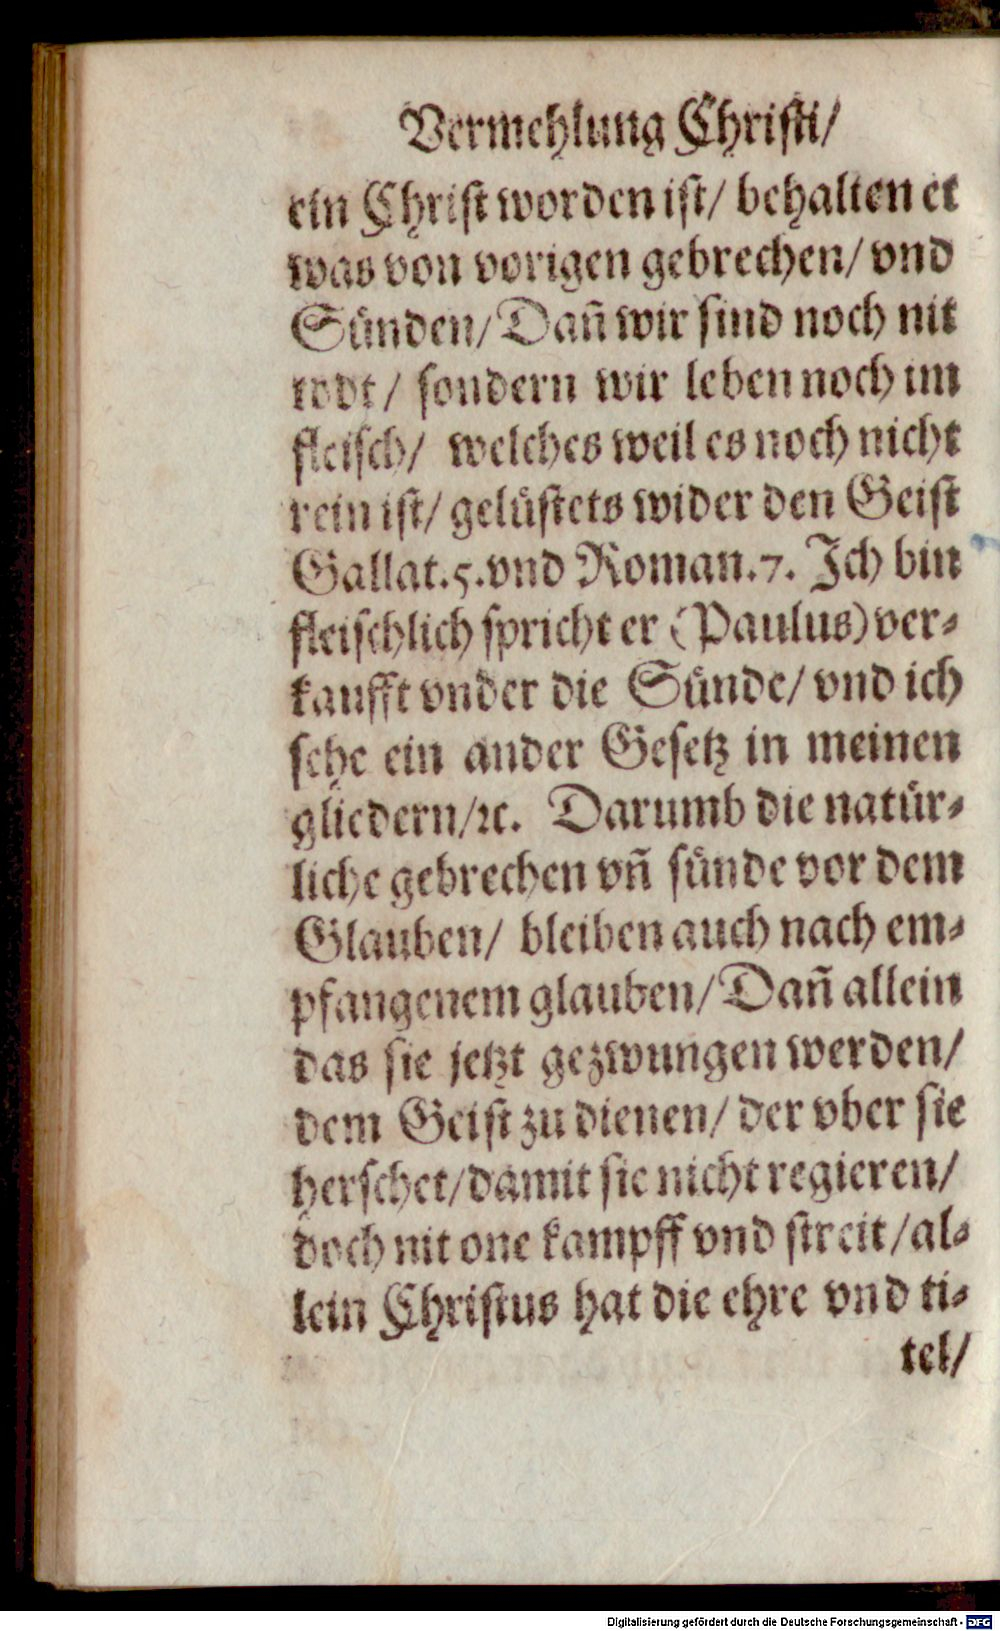 Vermehlung Christi/
ein Christ worden ist/ behalten et
was von vorigen gebrechen/ vnd
Sünden/ Dañ wir sind noch nit
todt/ sondern wir leben noch im
fleisch/ welches weil es noch nicht
rein ist/ gelüstets wider den Geist
Gallat.5.vnd Roman.7. Ich bin
fleischlich spricht er (Paulus) ver⸗
kaufft vnder die Sünde/ vnd ich
sehe ein ander Gesetz in meinen
gliedern/ꝛc. Darumb die natür⸗
liche gebrechen vñ sünde vor dem
Glauben/ bleiben auch nach em⸗
pfangenem glauben/ Dañ allein
das sie jetzt gezwungen werden/
dem Geist zu dienen/ der vber sie
herschet/ damit sie nicht regieren/
doch nit one kampff vnd streit/ al⸗
lein Christus hat die ehre vnd ti⸗
tel/
Digitalisierung gefördert durch die Deutsche Forschungsgemeinschaft - DFG